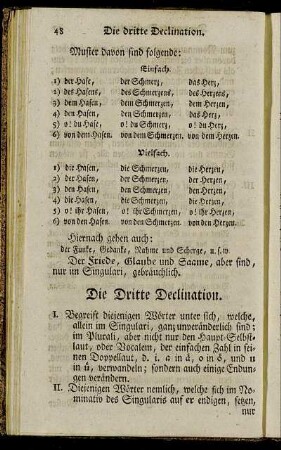 48 Die dritte Declination.
Muster davon sind folgende:
Einfach.
1) der Hase, der Schmerz, das Herz,
2) des Hasens, des Schmerzens, des Herzens,
3) dem Hasen, dem Schmerzen, dem Herzen,
4) den Hasen, den Schmerzen, das Herz,
5) o! du Hase, o! du Schmerz, o! du Herz,
6) von dem Hasen. von dem Schmerzen. von dem Herzen.
Vielfach.
1) die Hasen, die Schmerzen, die Herzen,
2) der Hasen, der Schmerzen, der Herzen,
3) den Hasen, den Schmerzen, den Herzen,
4) die Hasen, die Schmerzen, die Herzen,
5) o! ihr Hasen, o! ihr Schmerzen, o! ihr Herzen,
6) von den Hasen. von den Schmerzen. von den Herzen.
Hiernach gehen auch:
der Funke, Gedanke, Nahme und Scherge, u. s. w.
Der Friede, Glaube und Saame, aber sind,
nur im Singulari, gebräuchlich.
Die Dritte Declination.
I. Begreift diejenigen Wörter unter sich, welche,
allein im Singulari, ganz unveränderlich sind;
im Plurali, aber nicht nur den Haupt-Selbst-
laut, oder Vocalem, der einfachen Zahl in sei-
nen Doppellaut, d. i. a in á, o in ó, und u
in ú, verwandeln; sondern auch einige Endun-
gen verändern.
II. Diejenigen Wörter nemlich, welche sich im No-
minativ des Singularis auf er endigen, setzen,
nur